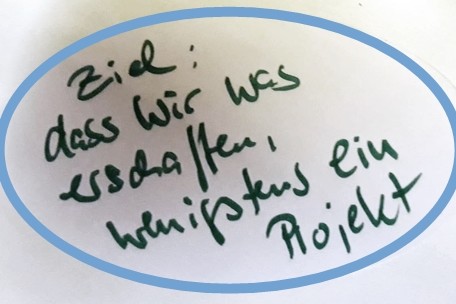 Ziel:
dass wir was
erschaffen,
wenigstens ein
Projekt